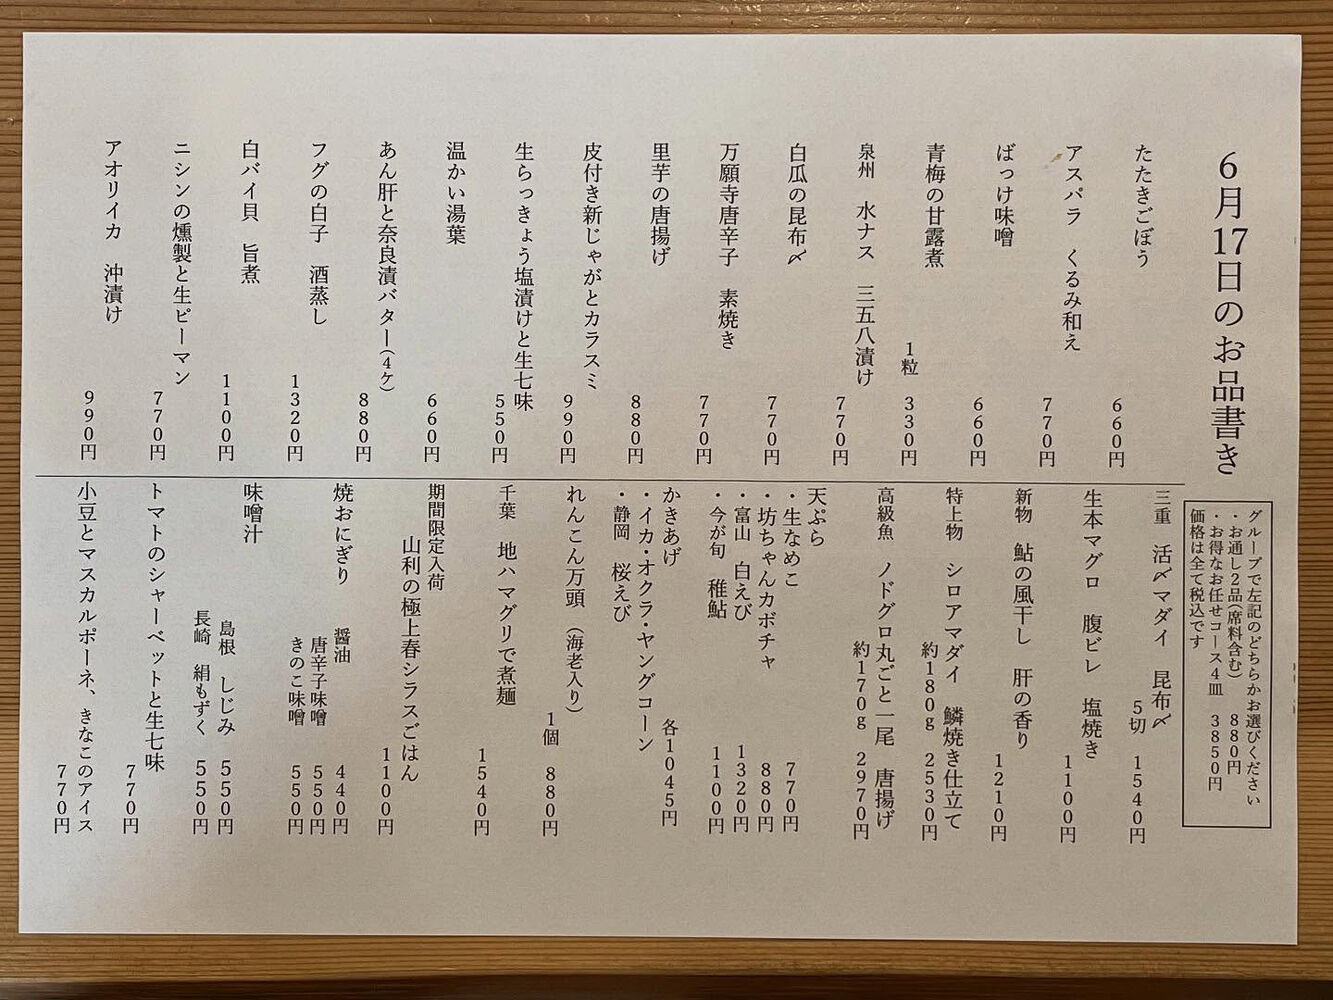 6月17日のお品書き
グループで左記のどちらかお選びください
・お通し2品(席料含む) 880円
・お得なお任せコース4皿 3850円
価格は全て税込です
たたきごぼう 660円
アスパラ くるみ和え 770円
ばっけ味噌 660円
青梅の甘露煮 1粒 330円
泉州 水ナス 三五八漬け 770円
白瓜の昆布〆 770円
万願寺唐辛子 素焼き 770円
里芋の唐揚げ 880円
皮付き新じゃがとカラスミ 990円
生らっきょう塩漬けと生七味 550円
温かい湯葉 660円
あん肝と奈良漬バター(4ケ) 880円
フグの白子 酒蒸し 1320円
白バイ貝 旨煮 1100円
ニシンの燻製と生ピーマン 770円
アオリイカ 沖漬け 990円
三重 活〆マダイ 昆布〆 5切 1540円
生本マグロ 腹ビレ 塩焼き 1100円
新物 鮎の風干し 肝の香り 1210円
特上物 シロアマダイ 鱗焼き仕立て 約180g 2530円
高級魚 ノドグロ丸ごと一尾 唐揚げ 約170g 2970円
天ぷら
・生なめこ 770円
・坊ちゃんカボチャ 880円
・富山 白えび 1320円
・今が旬 稚鮎 1100円
かきあげ 各1045円
・イカ・オクラ・ヤングコーン
・静岡 桜えび
れんこん万頭(海老入り) 1個 880円
千葉 地ハマグリで煮麺 1540円
期間限定入荷
山利の極上春シラスごはん 1100円
焼おにぎり 醤油 440円
唐辛子味噌 550円
きのこ味噌 550円
味噌汁 島根 しじみ 550円
長崎 絹もずく 550円
トマトのシャーベットと生七味 770円
小豆とマスカルポーネ、きなこのアイス 770円